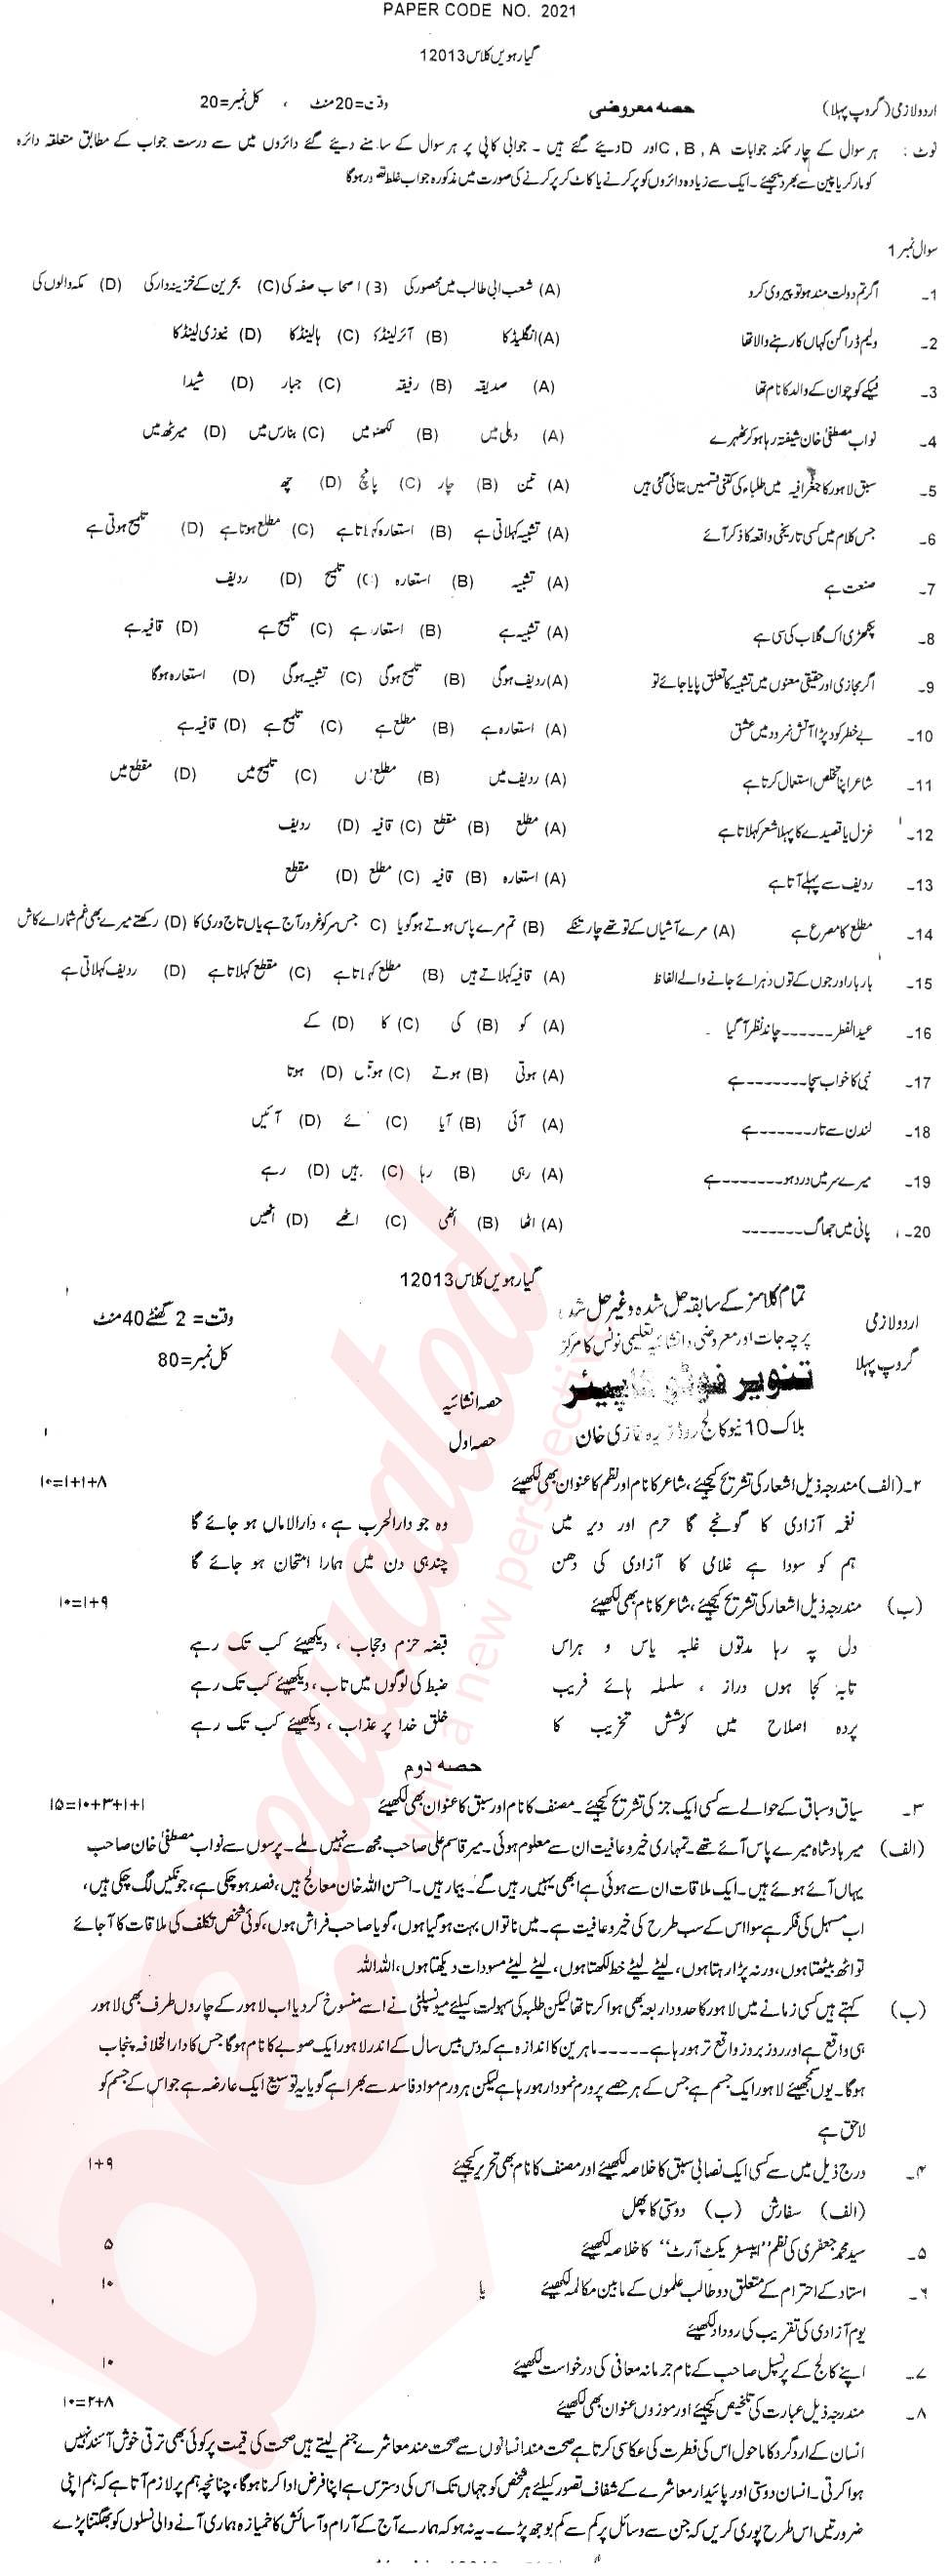 PAPER CODE NO. 2021
گیارہویں کلاس 12013
اردو لازمی (گروپ پہلا) حصہ معروضی وقت=20 منٹ ، کل نمبر=20
نوٹ : ہر سوال کے چار ممکنہ جوابات A ,B ,C اور D دیئے گئے ہیں ۔ جوابی کاپی پر ہر سوال کے سامنے دیئے گئے دائروں میں سے درست جواب کے مطابق متعلقہ دائرہ
کو مارکر یا پین سے بھر دیجیئے ۔ ایک سے زیادہ دائروں کو پر کرنے یا کاٹ کر پر کرنے کی صورت میں مذکورہ جواب غلط تصور ہوگا
سوال نمبر 1
1۔ اگر تم دولت مند ہو تو پیروی کرو (A) شعب ابی طالب میں محصور کی (B) اصحاب صفہ کی (C) بحرین کے خزینہ دار کی (D) مکہ والوں کی
2۔ ولیم ڈراگن کہاں کا رہنے والا تھا (A) انگلیڈ کا (B) آئرلینڈ کا (C) ہالینڈ کا (D) نیوزی لینڈ کا
3۔ ٹیکے کوچوان کے والد کا نام تھا (A) صدیقہ (B) رفیقہ (C) جبار (D) شیدا
4۔ نواب مصطفیٰ خان شیفتہ رہا ہو کر ٹھہرے (A) دہلی میں (B) لکھنو میں (C) بنارس میں (D) میرٹھ میں
5۔ سبق لاہور کا جغرافیہ میں طلباء کی کتنی قسمیں بتائی گئی ہیں (A) تین (B) چار (C) پانچ (D) چھ
6۔ جس کلام میں کسی تاریخی واقعہ کا ذکر آئے (A) تشبیہ کہلاتی ہے (B) استعارہ کہلاتا ہے (C) مطلع ہوتا ہے (D) تلمیح ہوتی ہے
7۔ صنعت ہے (A) تشبیہ (B) استعارہ (C) تلمیح (D) ردیف
8۔ پنکھڑی اک گلاب کی سی ہے (A) تشبیہ ہے (B) استعارہ ہے (C) تلمیح ہے (D) قافیہ ہے
9۔ اگر مجازی اور حقیقی معنوں میں تشبیہ کا تعلق پایا جائے تو (A) ردیف ہوگی (B) تلمیح ہوگی (C) تشبیہ ہوگی (D) استعارہ ہوگا
10۔ بے خطر کود پڑا آتش نمرود میں عشق (A) استعارہ ہے (B) مطلع ہے (C) تلمیح ہے (D) قافیہ ہے
11۔ شاعر اپنا تخلص استعمال کرتا ہے (A) ردیف میں (B) مطلع میں (C) تلمیح میں (D) مقطع میں
12۔ غزل یا قصیدے کا پہلا شعر کہلاتا ہے (A) مطلع (B) مقطع (C) قافیہ (D) ردیف
13۔ ردیف سے پہلے آتا ہے (A) استعارہ (B) قافیہ (C) مطلع (D) مقطع
14۔ مطلع کا مصرع ہے (A) مرے آشیاں کے تو تھے چار تنکے (B) تم مرے پاس ہوتے ہو گویا (C جس سر کو غرور آج ہے یاں تاج وری کا (D) رکھتے میرے بھی غم شمار اے کاش
15۔ بار بار اور جوں کے توں دہرائے جانے والے الفاظ (A) قافیہ کہلاتے ہیں (B) مطلع کہلاتا ہے (C) مقطع کہلاتا ہے (D) ردیف کہلاتی ہے
16۔ عید الفطر ------ چاند نظر آگیا (A) کو (B) کی (C) کا (D) کے
17۔ نبی کا خواب سچا -------- ہے (A) ہوتی (B) ہوتے (C) ہوتیں (D) ہوتا
18۔ لندن سے تار ------ ہے (A) آئی (B) آیا (C) ئے (D) آئیں
19۔ میرے سر میں درد ہو -------- ہے (A) رہی (B) رہا (C) ہیں (D) رہے
20۔ پانی میں جھاگ ------- (A) اٹھا (B) اٹھی (C) اٹھے (D) اٹھیں
گیارہویں کلاس 12013
تمام کلاسز کے سابقہ حل شدہ و غیر حل شدہ
اردو لازمی پرچہ جات اور معروضی و انشائیہ تعلیمی نوٹس کا مرکز وقت= 2 گھنٹے 40 منٹ
گروپ پہلا تنویر فوٹو کاپیئر کل نمبر=80
بلاک 10 نیو کالج روڈ ڈیرہ غازی خان حصہ انشائیہ
حصہ اول
۲۔ (الف) مندرجہ ذیل اشعار کی تشریح کیجیئے ، شاعر کا نام اور نظم کا عنوان بھی لکھیئے ۸+۱+۱=۱۰
نغمہ آزادی کا گونجے گا حرم اور دیر میں وہ جو دارالحرب ہے ، دارالاماں ہو جائے گا
ہم کو سودا ہے غلامی کا آزادی کی دھن چند ہی دن میں ہمارا امتحان ہو جائے گا
(ب) مندرجہ ذیل اشعار کی تشریح کیجیئے ، شاعر کا نام بھی لکھیئے ۹+۱=۱۰
دل پہ رہا مدتوں غلبہ یاس و ہراس قبضہ حزم و حجاب ، دیکھیئے کب تک رہے
تابہ کجا ہوں دراز ، سلسلہ ہائے فریب ضبط کی لوگوں میں تاب ، دیکھیئے کب تک رہے
پردہ اصلاح میں کوشش تخریب کا خلق خدا پر عذاب ، دیکھیئے کب تک رہے
حصہ دوم
۳۔ سیاق و سباق کے حوالے سے کسی ایک جز کی تشریح کیجیئے ۔ مصنف کا نام اور سبق کا عنوان بھی لکھیئے ۱+۱+۳+۱۰=۱۵
(الف) میر بادشاہ میرے پاس آئے تھے ۔ تمہاری خیر و عافیت ان سے معلوم ہوئی ۔ میر قاسم علی صاحب مجھ سے نہیں ملے ۔ پرسوں سے نواب مصطفیٰ خان صاحب
یہاں آئے ہوئے ہیں ۔ ایک ملاقات ان سے ہوئی ہے ابھی یہیں رہیں گے ۔ بیمار ہیں ۔ احسن اللہ خان معالج ہیں ، فصد ہو چکی ہے ، جونکیں لگ چکی ہیں ،
اب مسہل کی فکر ہے سوا اس کے سب طرح کی خیر و عافیت ہے ۔ میں ناتواں بہت ہو گیا ہوں ، گویا صاحب فراش ہوں ، کوئی شخص تکلف کی ملاقات کا آجائے
تو اٹھ بیٹھتا ہوں ، ورنہ پڑا رہتا ہوں ، لیٹے لیٹے خط لکھتا ہوں ، لیٹے لیٹے مسودات دیکھتا ہوں ، اللہ اللہ
(ب) کہتے ہیں کسی زمانے میں لاہور کا حدود اربعہ بھی ہوا کرتا تھا لیکن طلبہ کی سہولت کیلئے میونسپلٹی نے اسے منسوخ کر دیا اب لاہور کے چاروں طرف بھی لاہور
ہی واقع ہے اور روز بروز واقع تر ہو رہا ہے ----- ماہرین کا اندازہ ہے کہ دس بیس سال کے اندر لاہور ایک صوبے کا نام ہوگا جس کا دارالخلافہ پنجاب
ہوگا ۔ یوں سمجھیئے لاہور ایک جسم ہے جس کے ہر حصے پر ورم نمودار ہو رہا ہے لیکن ہر ورم مواد فاسد سے بھرا ہے گویا یہ توسیع ایک عارضہ ہے جو اس کے جسم کو
لاحق ہے
۴۔ درج ذیل میں سے کسی ایک نصابی سبق کا خلاصہ لکھیئے اور مصنف کا نام بھی تحریر کیجیئے ۹+۱
(الف) سفارش (ب) دوستی کا پھل
۵۔ سید محمد جعفری کی نظم ''ایبسٹریکٹ آرٹ'' کا خلاصہ لکھیئے ۵
۶۔ استاد کے احترام کے متعلق دو طالب علموں کے مابین مکالمہ لکھیئے یا ۱۰
یوم آزادی کی تقریب کی روداد لکھیئے
۷۔ اپنے کالج کے پرنسپل صاحب کے نام جرمانہ معافی کی درخواست لکھیئے ۱۰
۸۔ مندرجہ ذیل عبارت کی تلخیص کیجیئے اور موزوں عنوان بھی لکھیئے ۸+۲=۱۰
انسان کے ارد گرد کا ماحول اس کی فطرت کی عکاسی کرتا ہے صحت مند انسانوں سے صحت مند معاشرے جنم لیتے ہیں صحت کی قیمت پر کوئی بھی ترقی خوش آئند نہیں
ہوا کرتی ۔ انسان دوستی اور پائیدار معاشرے کے شفاف تصور کیلئے ہر شخص کو جہاں تک اس کی دسترس ہے اپنا فرض ادا کرنا ہوگا ، چنانچہ ہم پر لازم آتا ہے کہ ہم اپنی
ضرورتیں اس طرح پوری کریں کہ جن سے وسائل پر کم سے کم بوجھ پڑے ۔ یہ نہ ہو کہ ہمارے آج کے آرام و آسائش کا خمیازہ ہماری آنے والی نسلوں کو بھگتنا پڑے